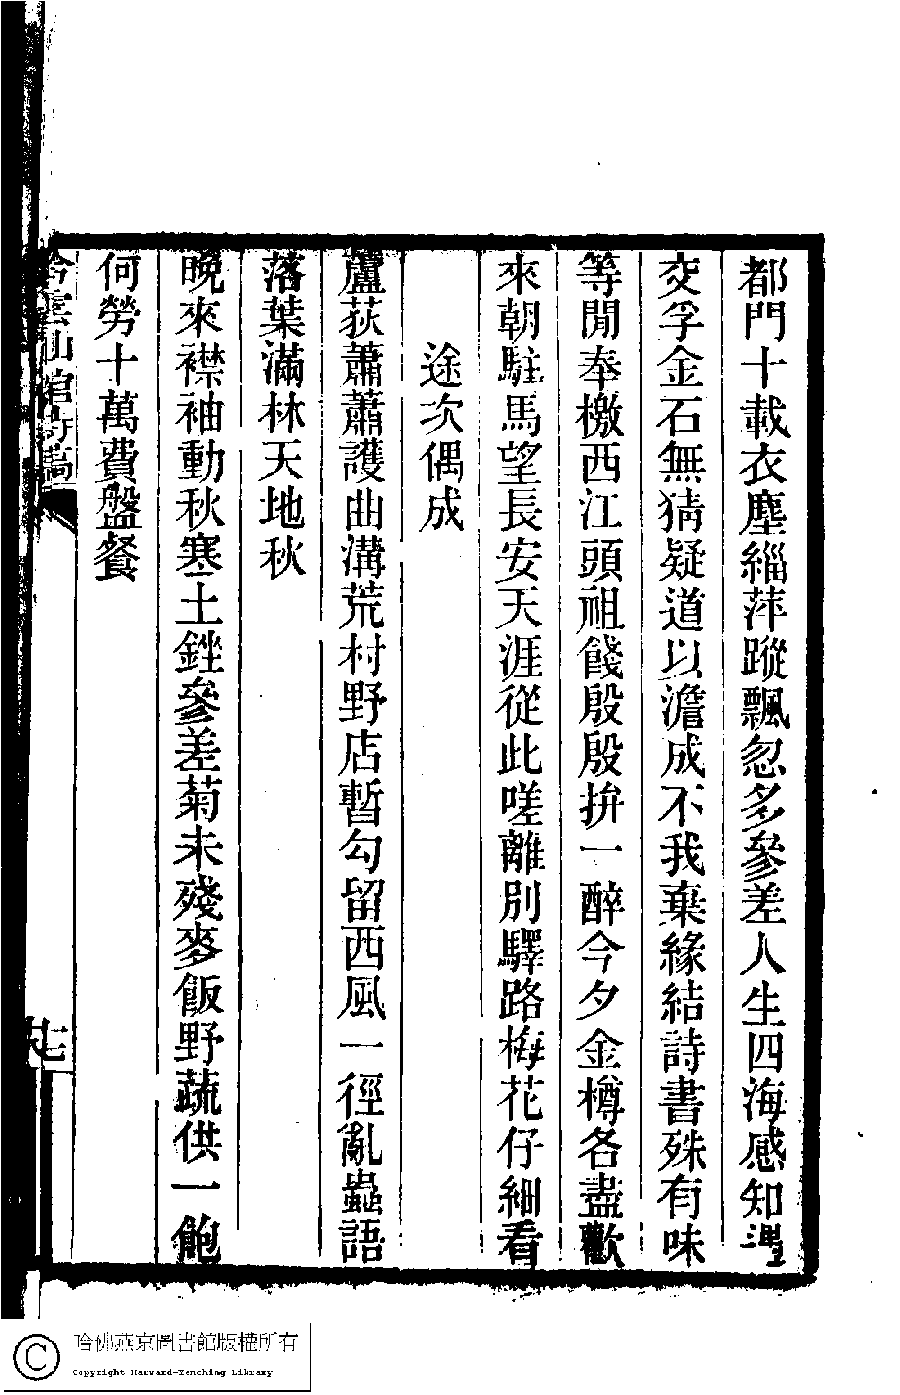 都門十載衣塵緇萍蹤飄忽多參差人生四海感知遇
交孚金石無猜疑道以澹成不我棄緣結詩書殊有味
等閒奉檄西江頭祖餞殷殷拚一醉今夕金樽各盡歡
來朝駐馬望長安天涯從此嗟離別驛路梅花仔細看
途次偶成
蘆荻蕭蕭護曲溝荒村野店暫勾留西風一徑亂蟲語
落葉滿林天地秋
晚來襟袖動秋寒土銼參差菊未殘麥飯野蔬供一飽
何勞十萬費盤餐
吟雲山館詩稿
十七
哈佛燕京圖書館版權所有
Copyright Harvard-Yenching Library